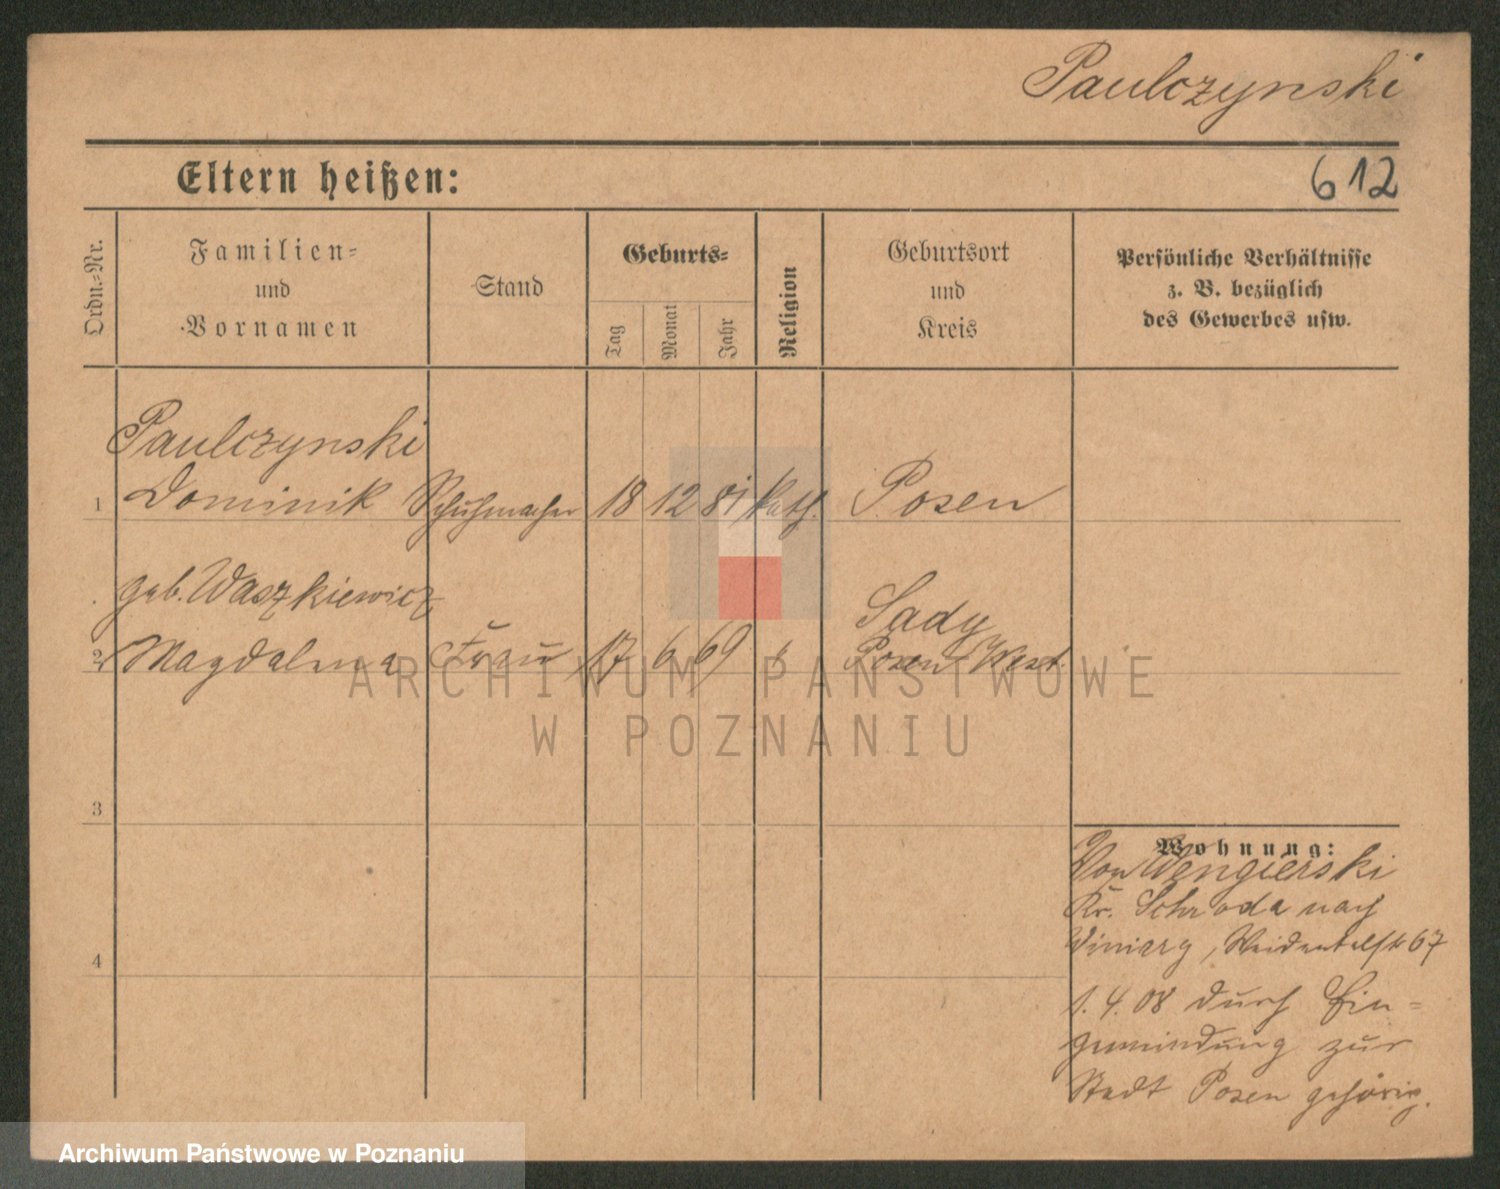 Paulczynski
Eltern heißen:
612
Ordn.-Nr.
Familien-
und
Vornamen
Stand
Geburts-
Tag
Monat
Jahr
Religion
Geburtsort
und
Kreis
Persönliche Verhältnisse
z. B. bezüglich
des Gewerbes usw.
Paulczynski
1 Dominik Schuhmacher 18 12 81 kath. Posen
geb. Waszkiewicz
Sady
2 Magdalena Frau 17 6 69 Posen West.
ARCHIWUM PAŃSTWOWE
W POZNANIU
3
Wohnung:
Von Wengierski
Kr. Schroda nach
4
Winiary, Weidentalstr 67
1.4.08 durch Ein-
gemeindung zur
Stadt Posen gehörig.
Archiwum Państwowe w Poznaniu